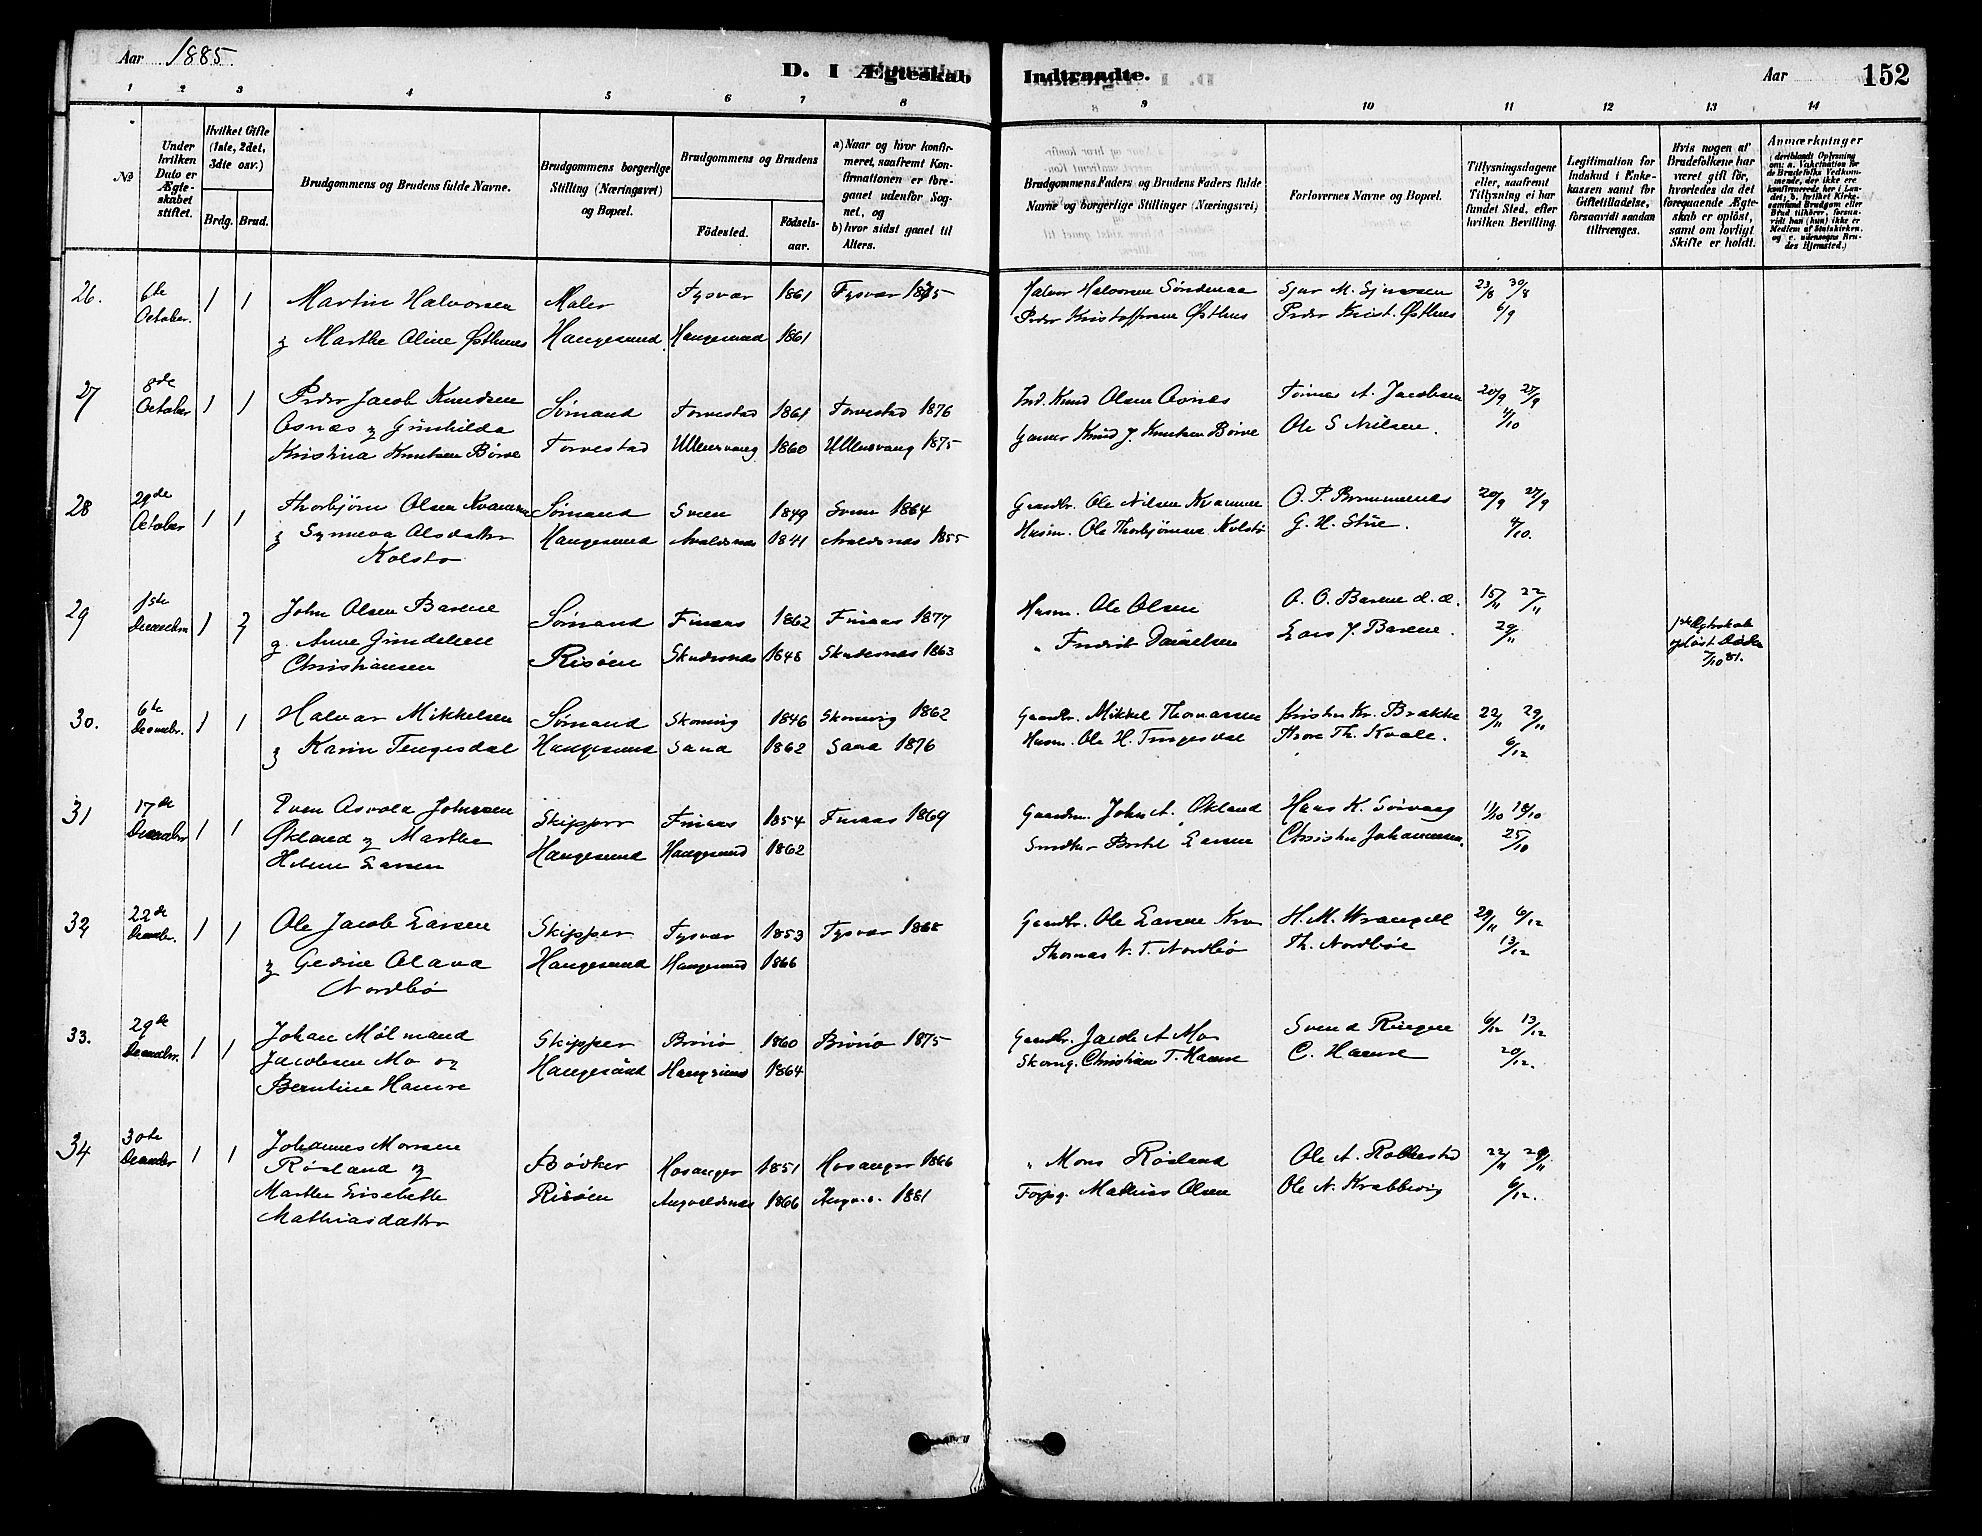 Aar 1885.
D. I Ægteskab Indtraadte.
Aar 152
1 2 3 4 5 6 7 8 9 10 11 12 13 14
No
Under hvilken Dato er Ægteskabet stiftet.
Hvilket Gifte (1ste, 2det, 3die osv.)
Brdg. Brud.
Brudgommens og Brudens fulde Navne.
Brudgommens borgerlige Stilling (Næringsvei) og Bopæl.
Brudgommens og Brudens
Födested. Födsels-aar.
a) Naar og hvor konfirmeret, saafremt Konfirmationen er foregaaet udenfor Sognet, og
b) hvor sidst gaaet til Alters.
Brudgommens Faders og Brudens Faders fulde Navne og borgerlige Stillinger (Næringsvei)
Forlovernes Navne og Bopæl.
Tillysningsdagene eller, saafremt Tillysning ei har fundet Sted, efter hvilken Bevilling.
Legitimation for Indskud i Enkekassen samt for Giftetilladelse, forsaavidt saadan tiltrænges.
Hvis nogen af Brudefolkene har været gift för, hvorledes da det foregaaende Ægteskab er oplöst, samt om lovligt Skifte er holdt.
Anmærkninger
26. 6te October. 1 1 Martin Halvorsen Maler Tysvær 1861 Tysvær 1875 Halvor Halvorsen Søndenaa 23/8 30/8
& Marthe Oline Østhus Haugesund Haugesund 1861 Peder Kristoffersen Østhus Peder Krist. Østhus 6/9
27 8de October 1 1 Peder Jacob Knudsen Sømand Torvestad 1861 Torvestad 1876 Ind. Knud Olsen Osnes Tønnes A. Jacobsen 20/9 27/9
Osnæs & Gunhilda
Kristina Knutsen Børve Torvestad Ullensvang 1860 Ullensvang 1875 Gaardbr Knud J. Knutsen Børve Ole S Nilsen. 4/10
28 29de October 1 1 Thorbjørn Olsen Kvamme Sømand Sveen 1849 Sveen 1864 Gaardbr. Ole Nilsen Kvamme O. P. Brummenæs 20/9 27/9
& Synneva Olsdatter Haugesund Avaldsnæs 1841 Avaldsnæs 1855 Husm. Ole Thorbjørnsen Kolstø G. H. Stue. 4/10.
Kolstø
29 1ste December 1 2 John Olsen Barene Sømand Finaas 1862 Finaas 1877 Husm. Ole Olsen O. O. Barene d. æ. 15/11 22/11 1ste Ægteskab
& Anne Gundelene
Christiansen Risøen Skudesnæs 1848 Skudesnæs 1863 " Fredrik Danielsen Lars J. Barene. 29/11 opløst 7/10 81.
30. 6te Decembr. 1 1 Halvor Mikkelsen Sømand Skonevig 1846 Skonevig 1862 Gaardbr. Mikkel Thomassen Kristen Kr. Brække 22/11 29/11
& Karin Tengesdal Haugesund Sand 1862 Sand 1876 Husm. Ole H. Tengesdal Thore Th. Kvale. 6/12
31 17de December 1 1 Even Osvold Johnsen Skipper Finaas 1854 Finaas 1869 Gaardm. John A. Økland 11/10 18/10
Økland & Marthe
Helene Larsen Haugesund Haugesund 1862 Snedker Bertel Larsen Christen Johannesen. 25/10
32 22de Decembr. 1 1 Ole Jacob Larsen Skipper Tysvær 1853 Tysvær 1868 Gaardbr. Ole Larsen H. M. Wrangell 29/11 6/12
& Gedine Olava Haugesund Haugesund 1866 Thomas N. T. Nordbø Th. Nordbøe 13/12
Nordbø
33. 29de Decembr. 1 1 Johan Møl mand Skipper Brönö 1860 Brönö 1875 Gaardbr. Jacob A Mo Svend Ringen 6/12 13/12
Jacobsen Mo og Haugesund Haugesund 1864 Christian T. Hamre C. Hamre 20/12.
Berntine Hamre
34 30te December 1 1 Johannes Monsen
Røsland & Bødker Hosanger 1851 Hosanger 1866 " Mons Røsland Ole A. Rolfestad 22/11 29/11
Marthe Lisebeth Risøen Augvaldsnæs 1866 Augv.s. 1881 Forpg. Mathias Olsen Ole N. Krabbevig 6/12.
Mathiasdatter